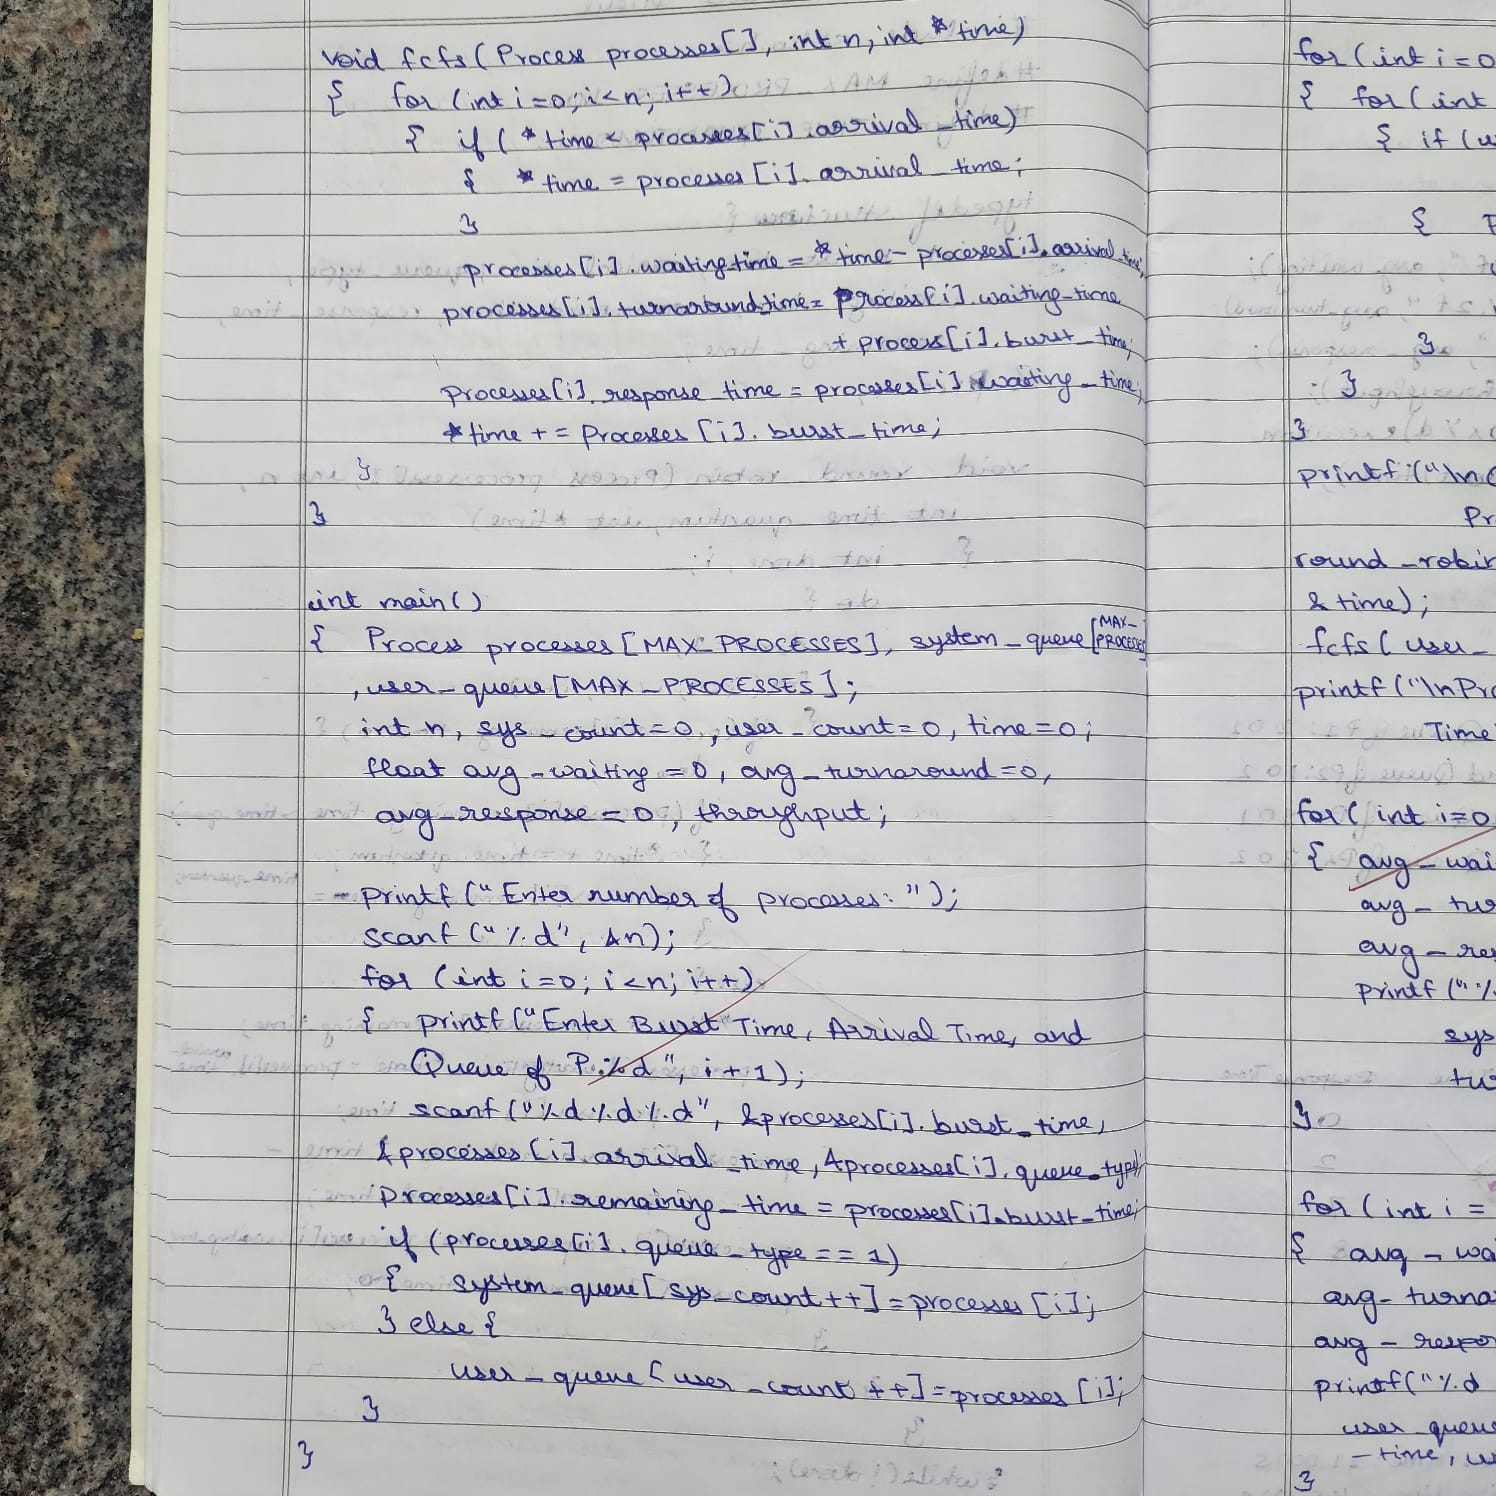 void fcfs(Process processes[], int n, int *time)
{ for (int i=0; i<n; i++)
{ if (*time < processes[i].arrival_time)
{ *time = processes[i].arrival_time;
}
processes[i].waiting_time = *time - processes[i].arrival_time;
processes[i].turnaround_time = process[i].waiting_time
+ process[i].burst_time;
processes[i].response_time = processes[i].waiting_time;
*time += processes[i].burst_time;
}
}
int main()
{ Process processes[MAX_PROCESSES], system_queue[MAX_PROCESSES]
, user_queue[MAX_PROCESSES];
int n, sys_count=0, user_count=0, time=0;
float avg_waiting=0, avg_turnaround=0,
avg_response=0, throughput;
printf("Enter number of processes: ");
scanf("%d", &n);
for (int i=0; i<n; i++)
{ printf("Enter Burst Time, Arrival Time, and
Queue of P.%d", i+1);
scanf("%d%d%d", &processes[i].burst_time,
&processes[i].arrival_time, &processes[i].queue_type)
processes[i].remaining_time = processes[i].burst_time;
if (processes[i].queue_type == 1)
{ system_queue[sys_count++] = processes[i];
} else {
user_queue[user_count++] = processes[i];
}
}
for(int i=0
{ for(int
{ if(
{
}
}
}
printf("\n
Pr
round_robin
& time);
fcfs(user_
printf("\nPro
Time
for( int i=0
{ avg_wai
avg_tur
avg_res
printf("%
sys
tur
}
for(int i =
{ avg_wa
avg_turna
avg_respo
printf("%d
user_queue
_time,
}